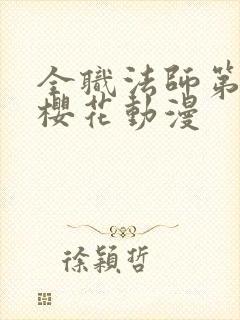 全職法師第
櫻花動漫
徐穎哲